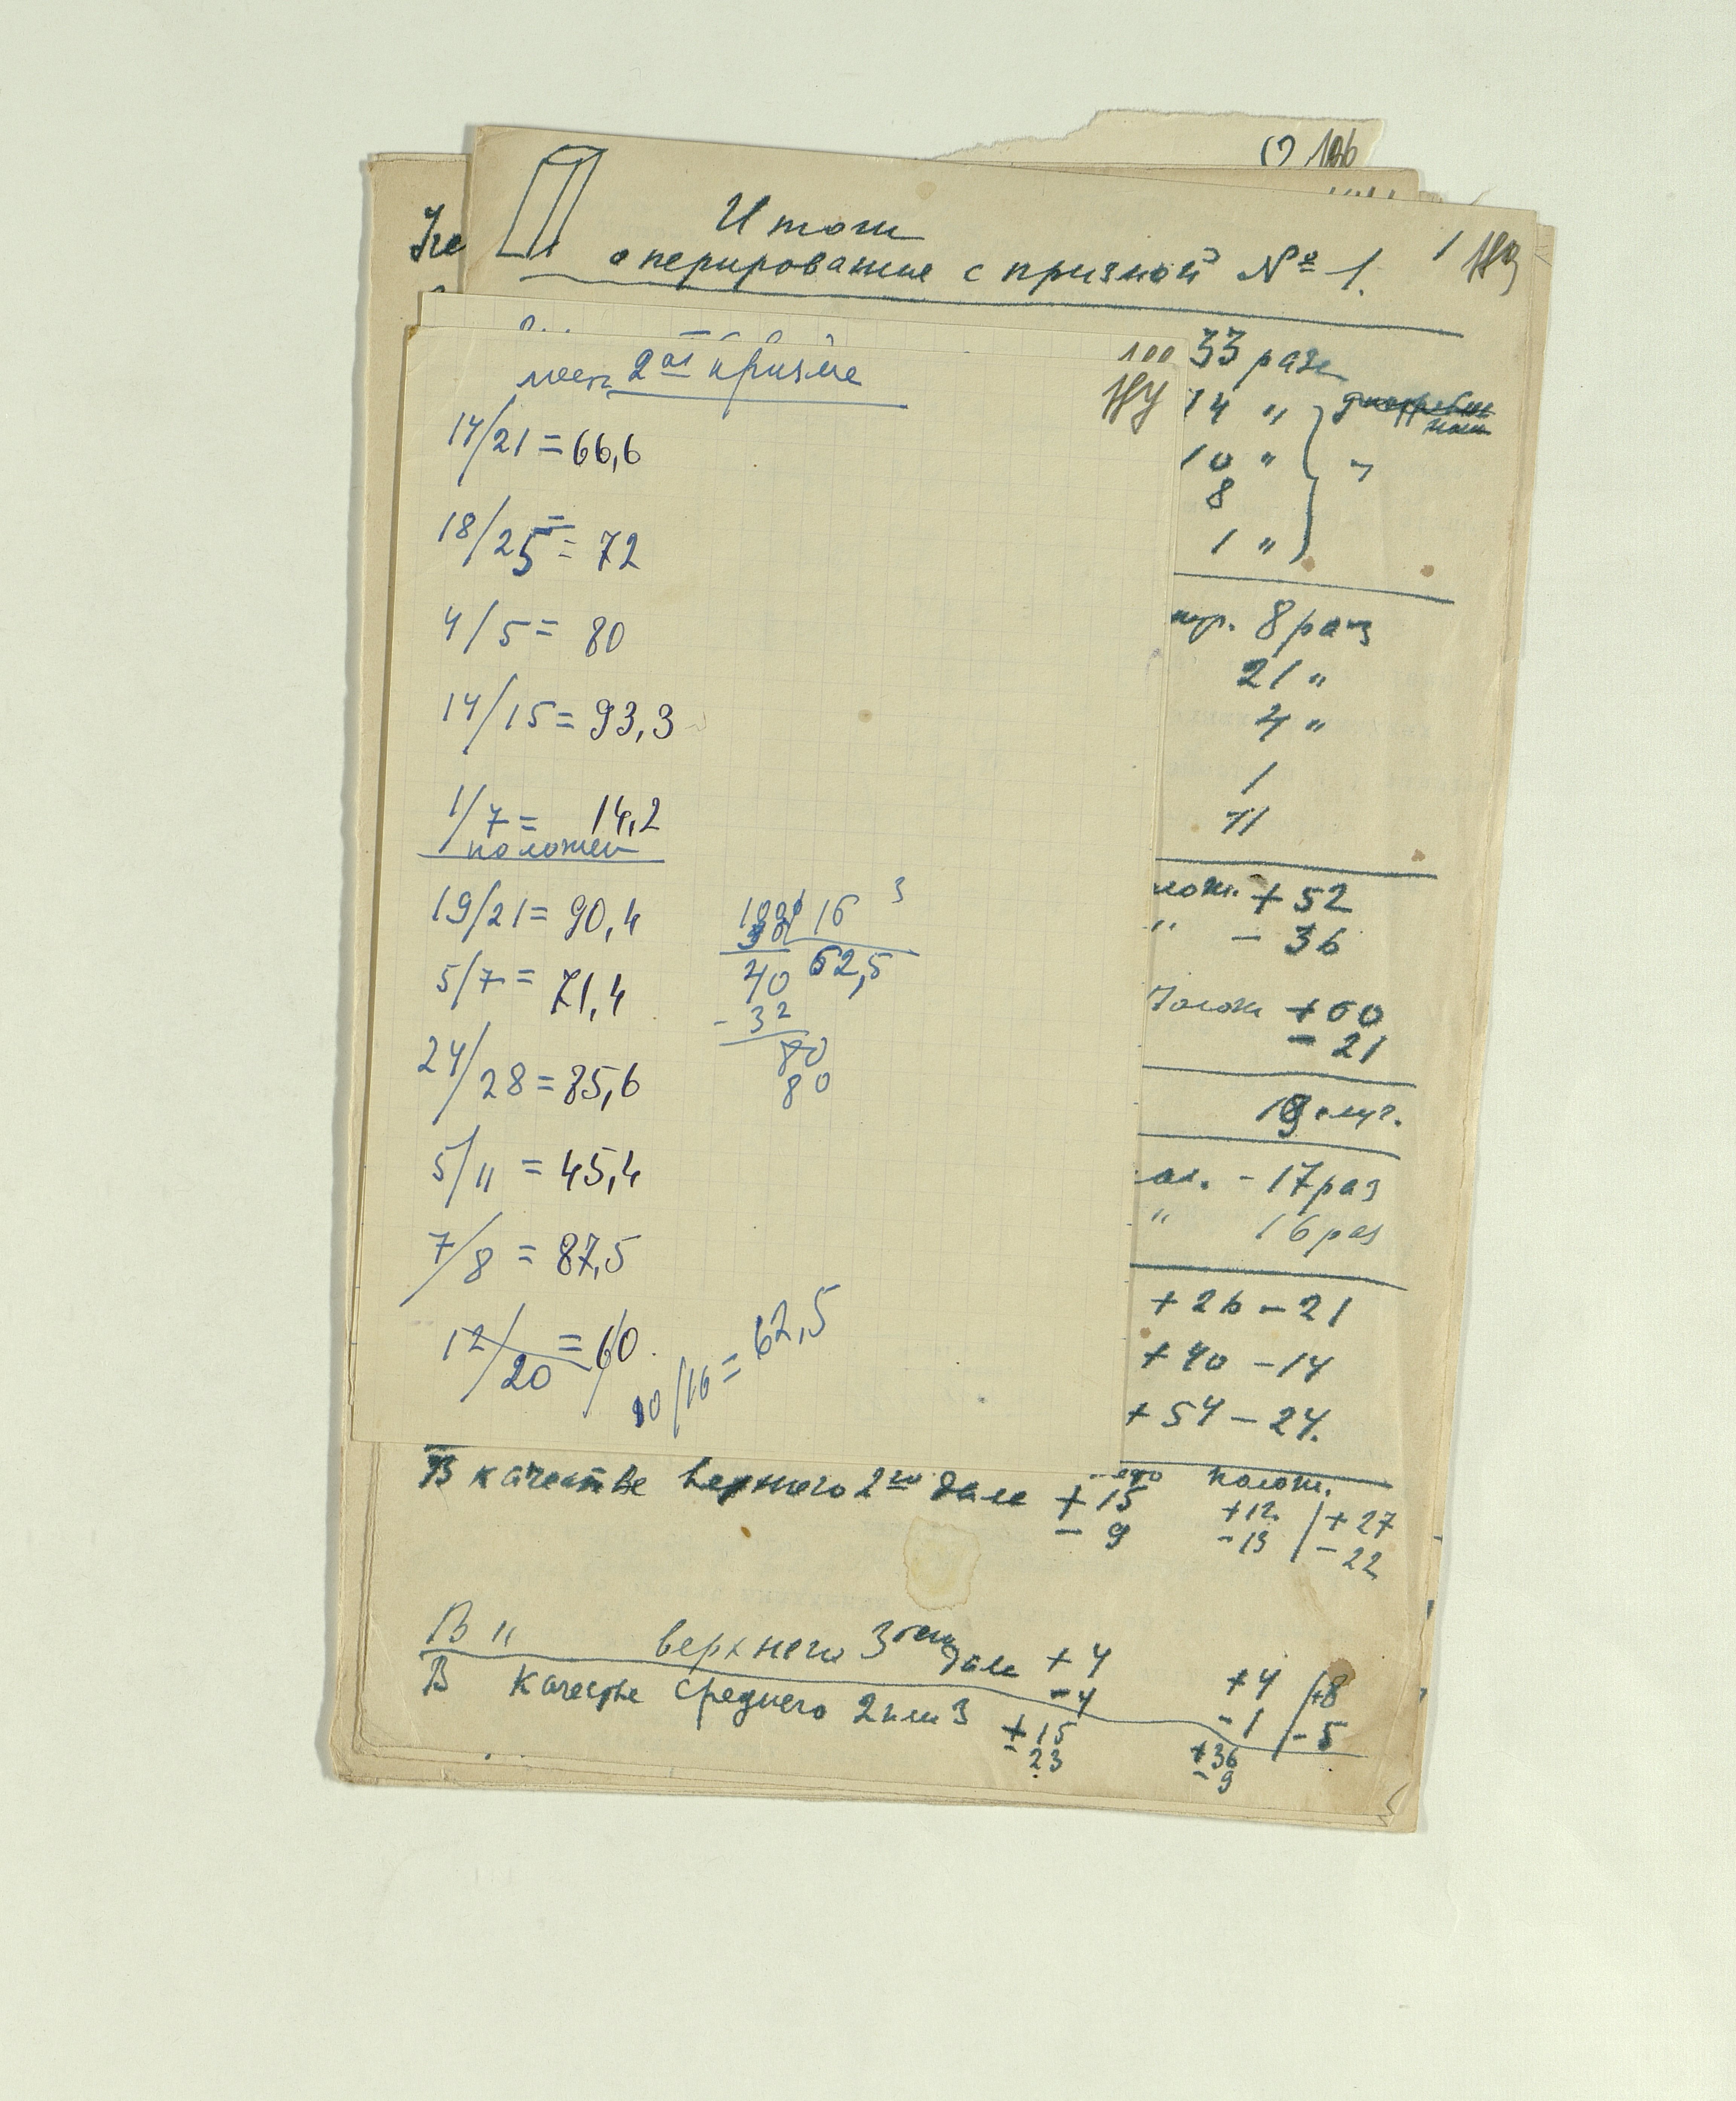 126
Итоги
оперирование с призмой № 1.
1
2ая призме
100
14/21 = 66,6
18/25 = 72
4/5 = 80
14/15 = 93,3
1/7 = 14,2
положен
19/21 = 90,4
5/7 = 71,4
24/28 = 85,6
5/11 = 45,4
7/8 = 87,5
12/20 = 60
10/16 = 62,5
100 16 3
40 62,5
- 32
80
80
33 раза
14 "
10 " "
8
1 "
8 раз
21 "
4 "
1
11
+ 52
" - 36
полож +60
- 21
19 случ.
- 17 раз
" 16 раз
+ 26 - 21
+ 40 - 14
+ 54 - 24.
полож.
В качестве верхнего 2го дале + 15 +12 / + 27
- 9 - 13 - 22
В " верхнего 3 дале + 4 +4 / +8
- 4 - 1 - 5
В качестве среднего 2 или 3 + 15 +36
- 23 - 9